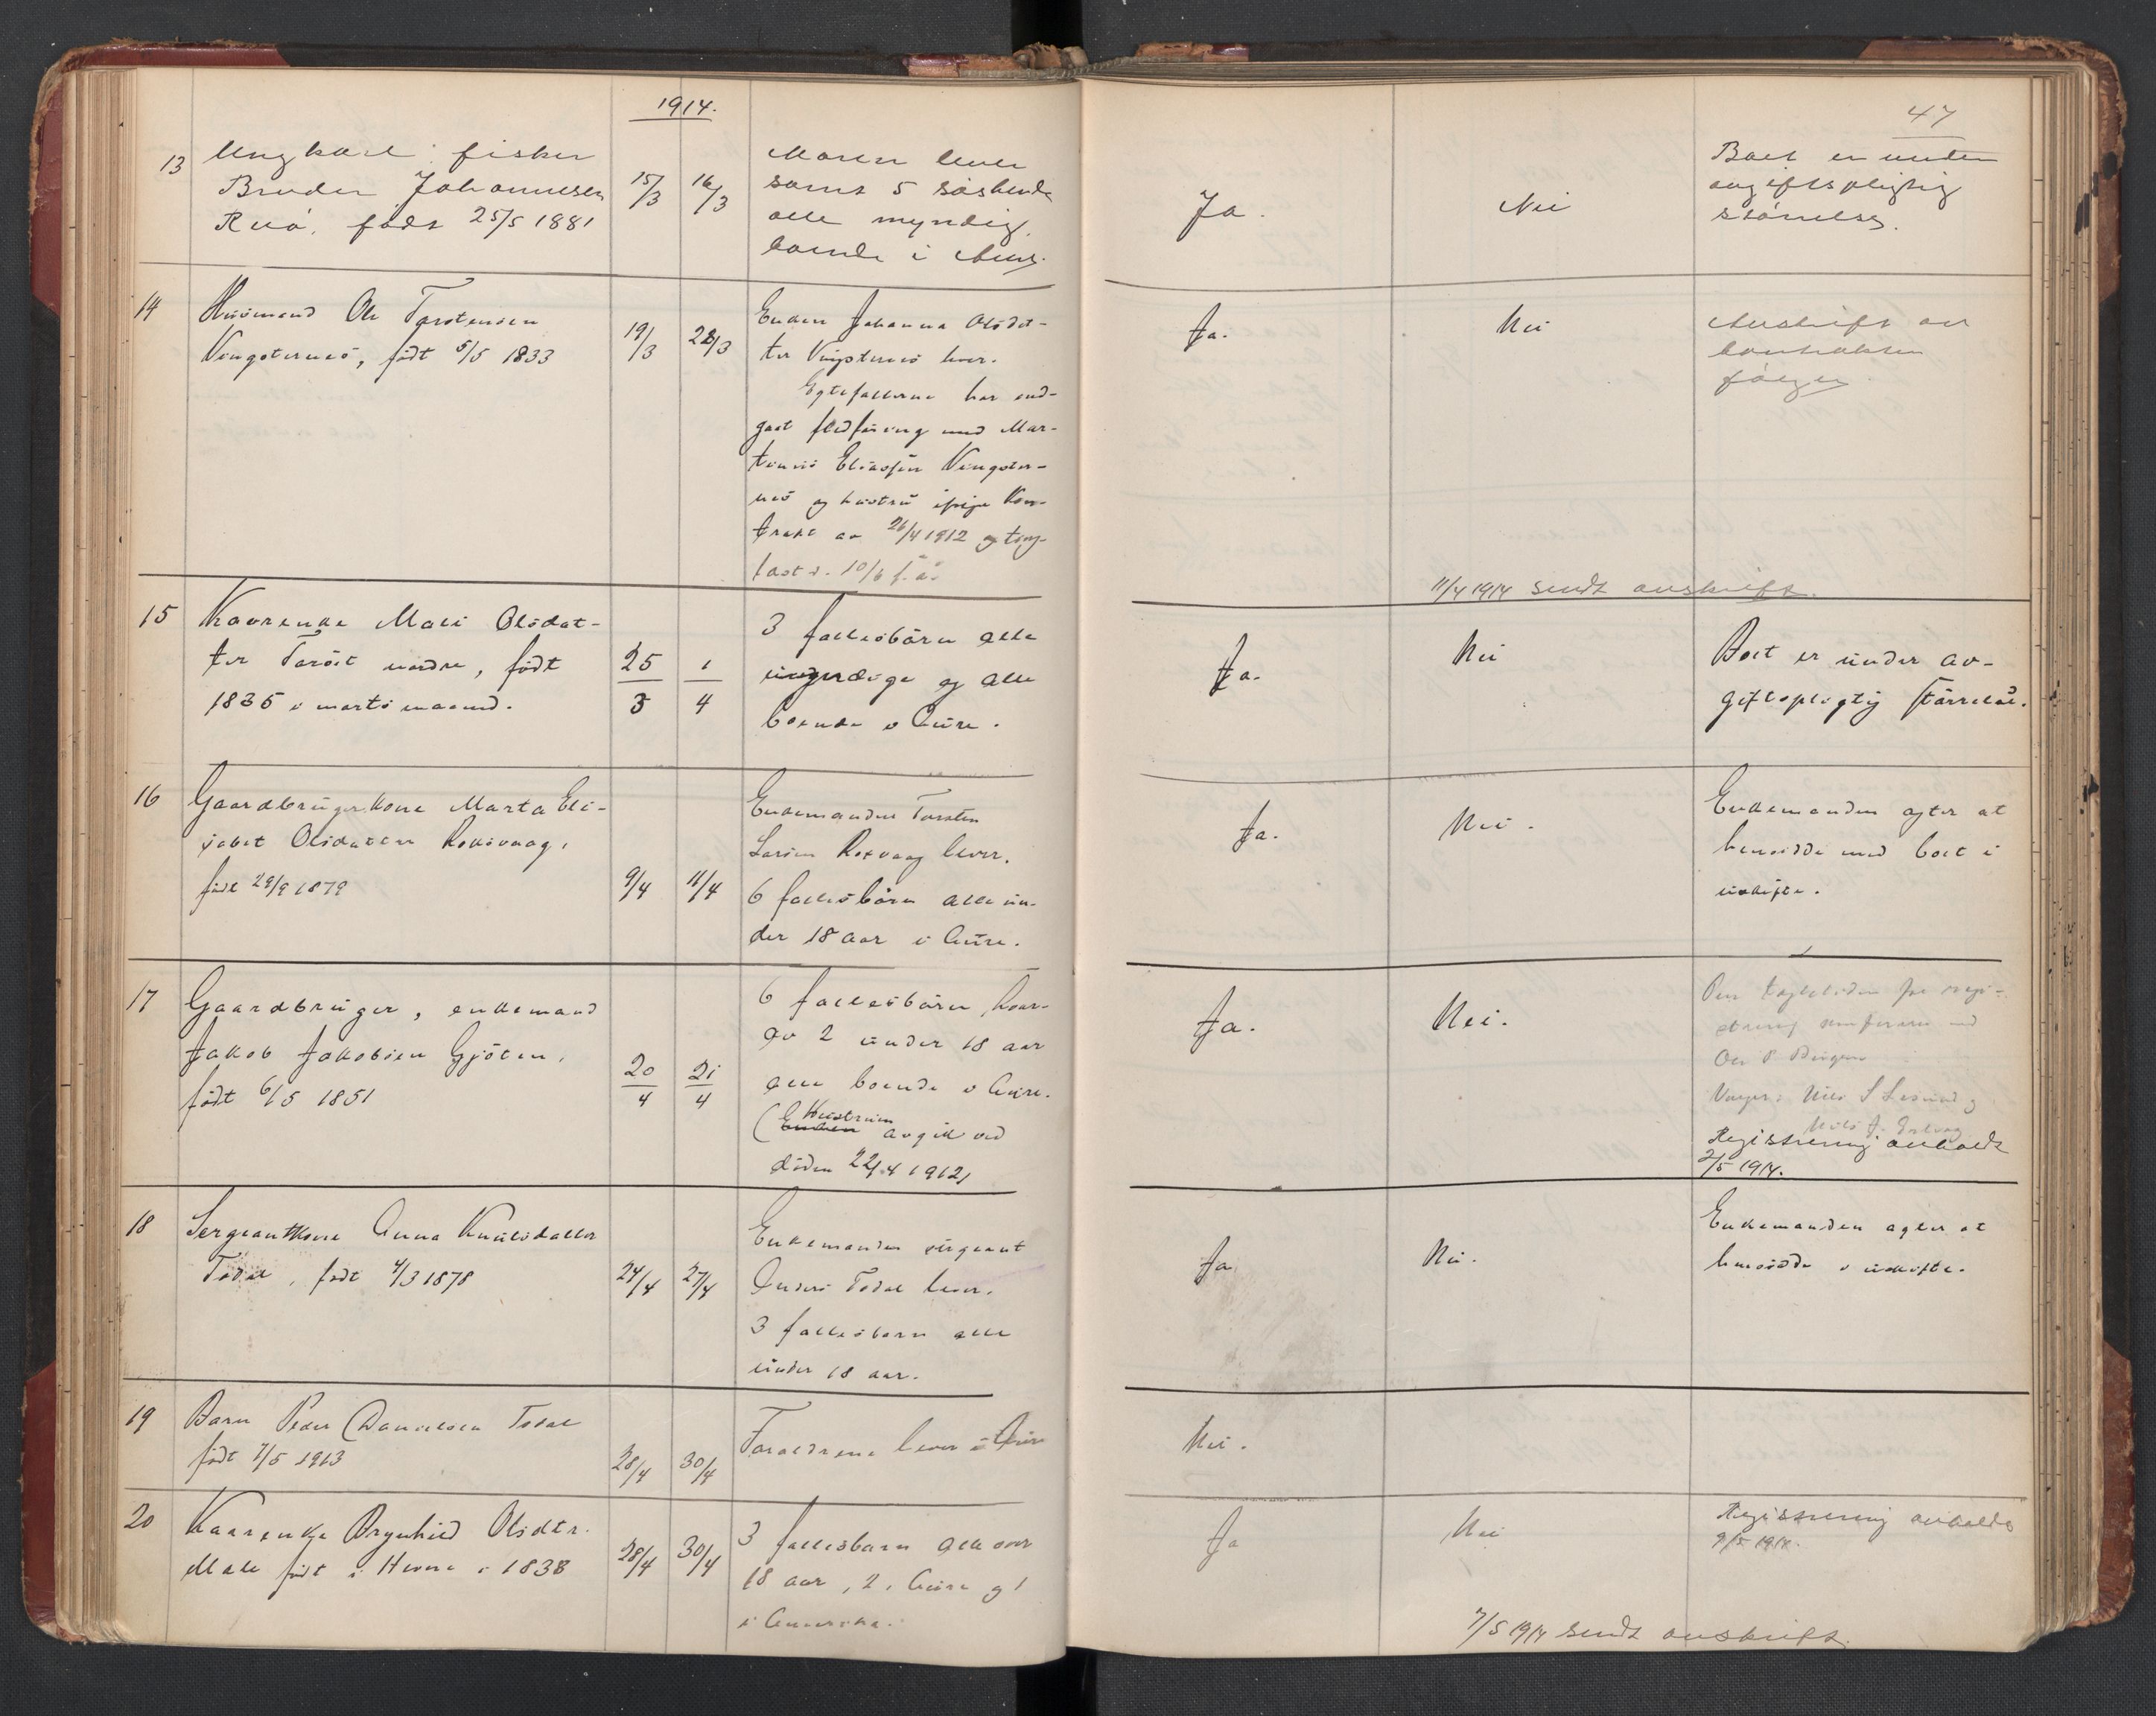 1914.
47
13 Ungkarl fisker
Bruder Johannessen
Ruö, födt 25/5 1881
15/3 16/3
Moren lever
samt 5 söskende
alle myndig,
boende i Aure.
Ja.
Nei
Boet er under
avgiftspligtig
störrelse.
14 Husmand Ole Torstensen
Vingsternes, födt 5/5 1833
19/3 28/3
Enken Johanna Olsdat-
ter Vingsternes lever.
Egtefællerne har ind-
gaat flidföring med Mar-
tinus Eliassen Vingster-
nes og hustru ifölge Kon-
trakt av 26/4 1912 og ting-
læst s. 10/6 f. a.
Ja.
Nei
Avskrift av
kontrakten
fölger.
11/4 1914 sendt avskrift.
15 Kaarenke Mali Olsdat-
ter Torset nordre, födt
1835 i marts maaned.
25/3 1/4
3 fællesbörn alle
myndige og alle
boende i Aure.
Ja.
Nei
Boet er under av-
giftspligtig störrelse.
16 Gaardbrugerkone Marta Eli-
sabet Olsdatter Roksvaag,
födt 29/9 1879
9/4 11/4
Enkemanden Torsten
Larsen Roksvaag lever.
6 fællesbörn alle un-
der 18 aar i Aure.
Ja.
Nei.
Enkemanden agter at
hensidde med boet i
uskifte.
17 Gaardbruger, enkemand
Jakob Jakobsen Gjöten,
födt 6/5 1851
20/4 21/4
6 fællesbörn, hvor-
av 2 under 18 aar
alle boende i Aure.
(Enken Hustruen avgik ved
döden 22/4 1912)
Ja.
Nei.
for regi-
strering
Ole P.
Verger: Nils S
Nils J.
Registrering avholdt
2/5 1914.
18 Sergeantkone Anna Knutsdatter
Todal, födt 4/3 1878
24/4 27/4
Enkemanden sergeant
Anders Todal lever.
3 fællesbarn alle
under 18 aar.
Ja
Nei.
Enkemanden agter at
hensidde i uskifte.
19 Barn Peder Danielsen Todal
födt 7/5 1913
28/4 30/4
Foraeldrene lever i Aure
Nei.
20 Kaarenke Brynhild Olsdtr.
Male födt i Hevne i 1838
28/4 30/4
3 fællesbarn alle over
18 aar, 2 i Aure og 1
i Amerika.
Ja
Nei
Registrering avholdt
9/5 1914.
7/5 1914 sendt avskrift.